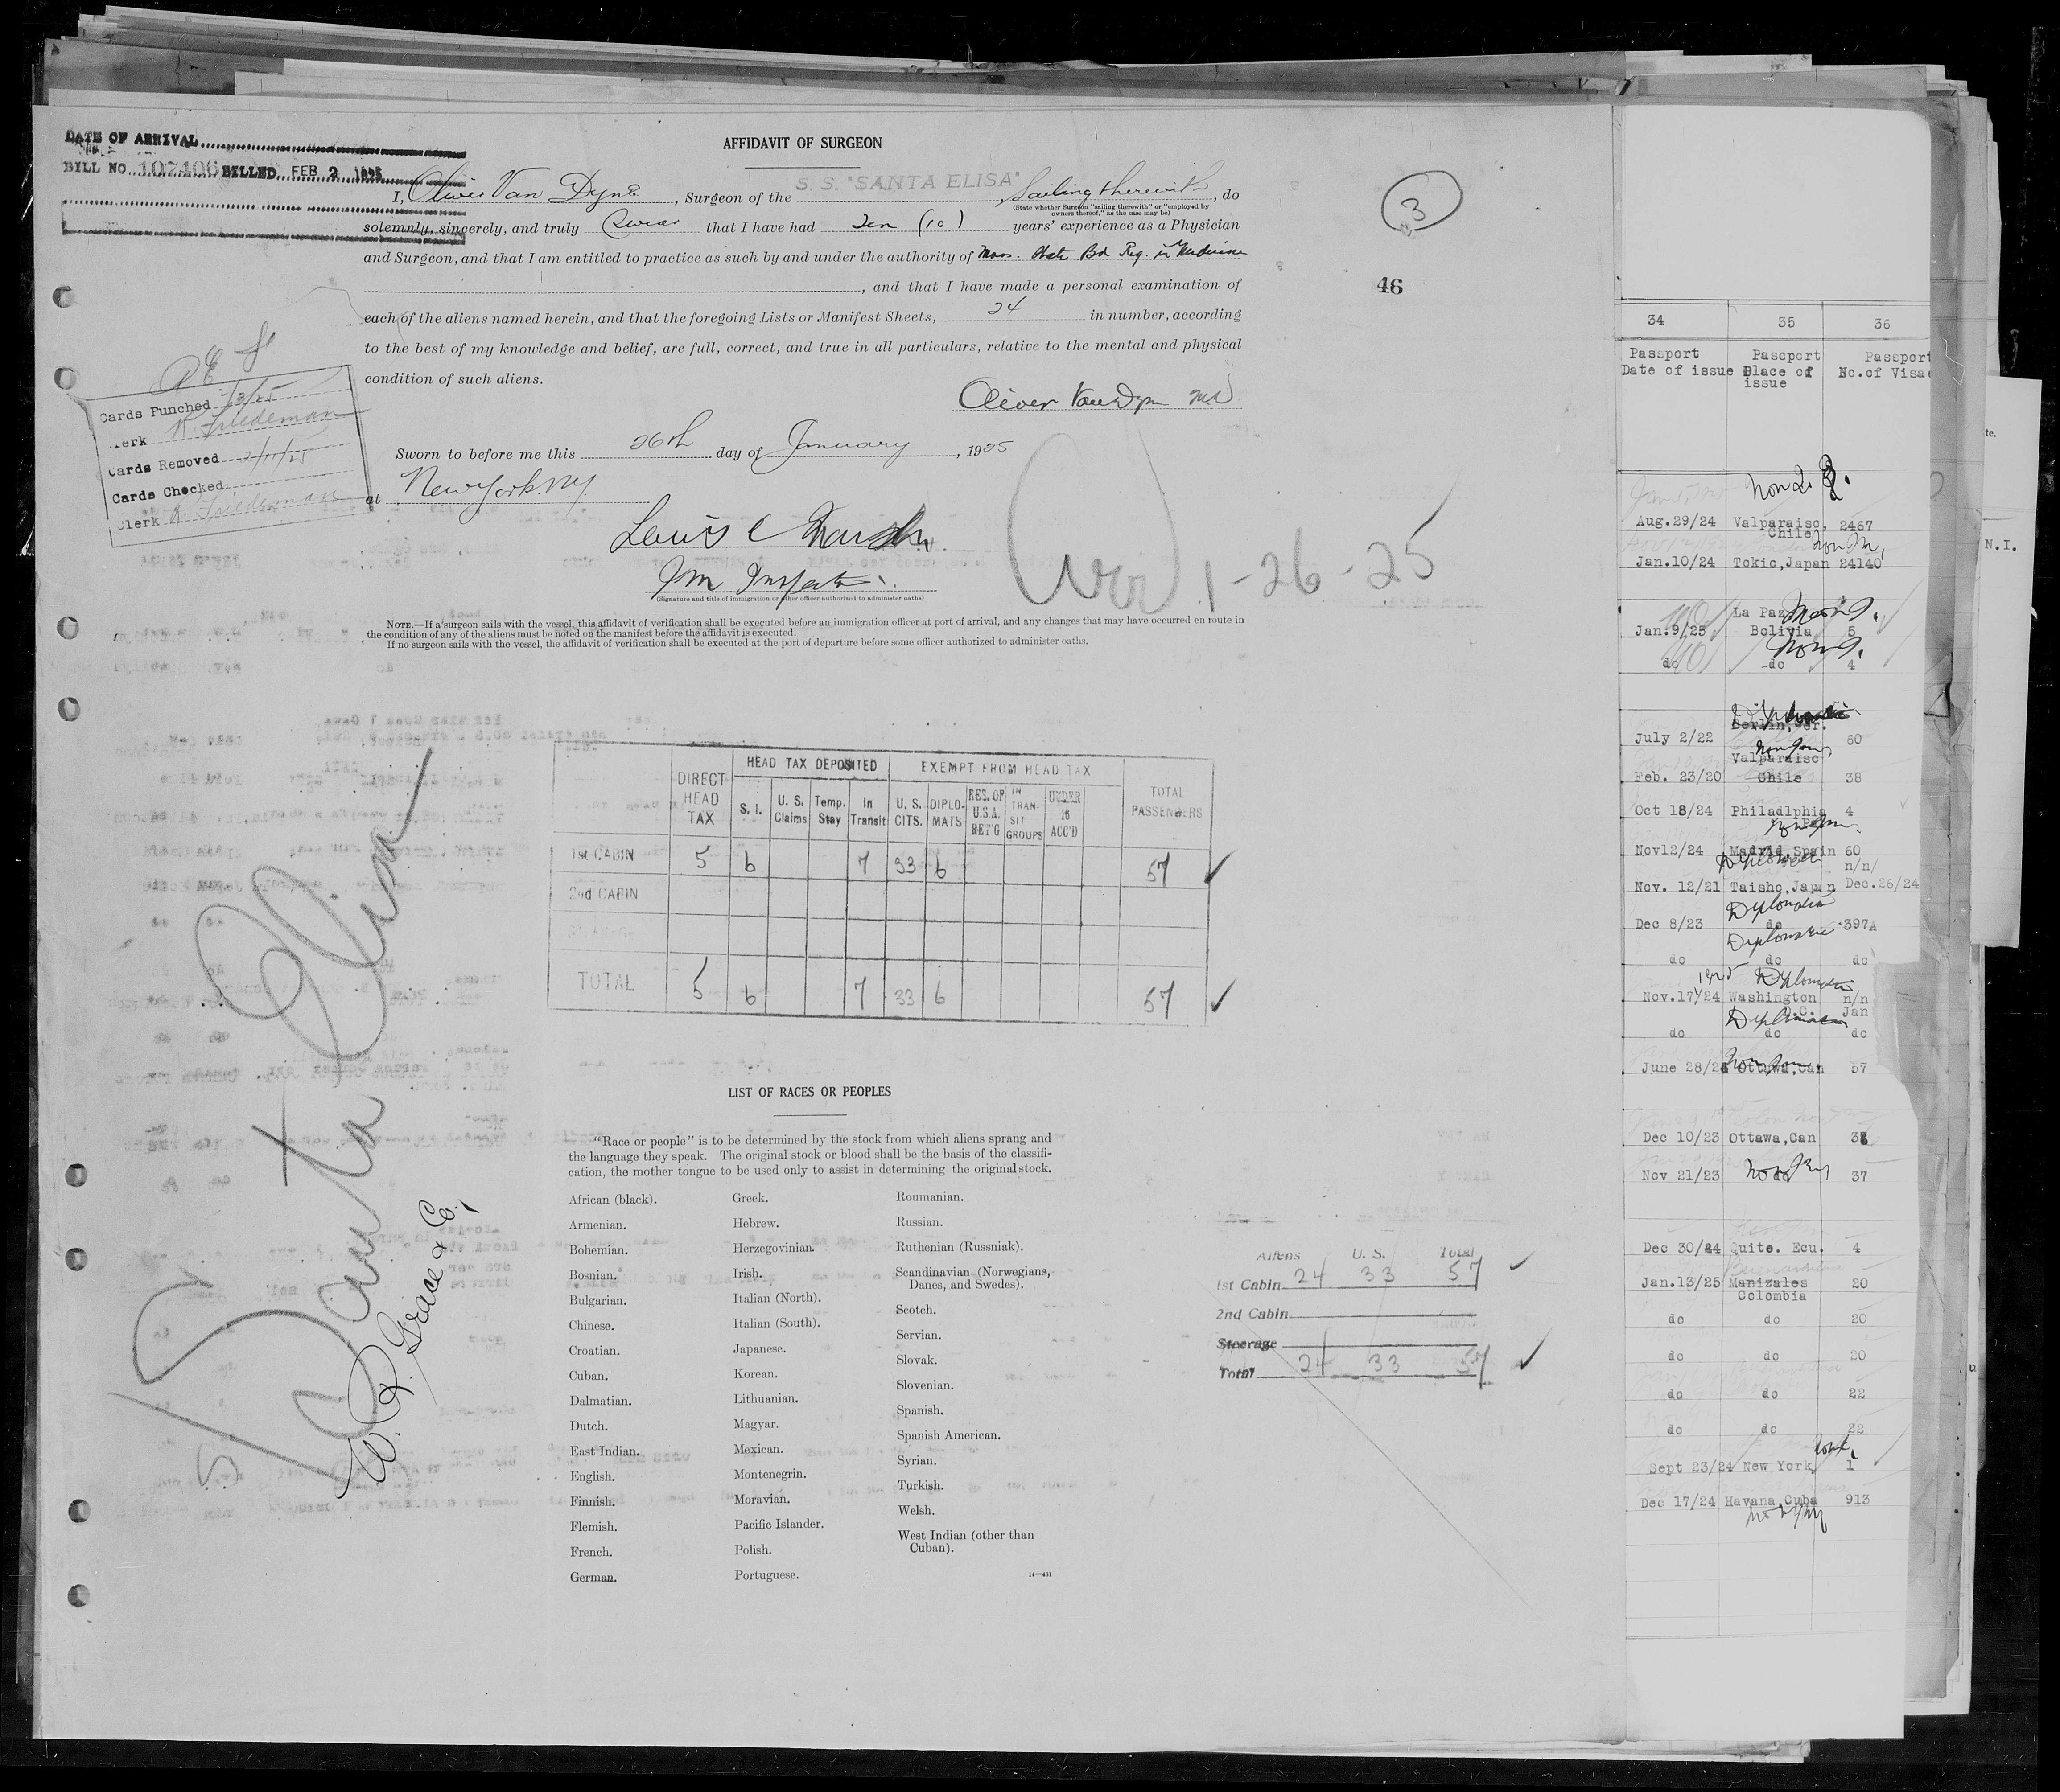 DATE OF ARRIVAL
BILL NO. 107406 BILLED FEB 2 1925
AFFIDAVIT OF SURGEON
S. S. "SANTA ELISA"
I, Oliver Van Dyne, Surgeon of the Sailing therewith, do
(State whether Surgeon "sailing therewith" or "employed by
owners thereof," as the case may be)
solemnly, sincerely, and truly Swear that I have had Ten (10) years' experience as a Physician
and Surgeon, and that I am entitled to practice as such by and under the authority of Mass. State Bd Reg. in Medicine
, and that I have made a personal examination of
each of the aliens named herein, and that the foregoing Lists or Manifest Sheets, 24 in number, according
to the best of my knowledge and belief, are full, correct, and true in all particulars, relative to the mental and physical
condition of such aliens.
Oliver Van Dyne MD
3
46
Cards Punched 2/3/25
Clerk Friedeman
Cards Removed 2/11/25
Cards Checked
Clerk Friedeman
Sworn to before me this 26th day of January, 1925
at New York, NY.
Lewis C
Im Inspector
(Signature and title of immigration or other officer authorized to administer oaths)
1-26-25
NOTE.—If a surgeon sails with the vessel, this affidavit of verification shall be executed before an immigration officer at port of arrival, and any changes that may have occurred en route in
the condition of any of the aliens must be noted on the manifest before the affidavit is executed.
If no surgeon sails with the vessel, the affidavit of verification shall be executed at the port of departure before some officer authorized to administer oaths.
Santa Elisa
W. R. Grace & Co.
DIRECT HEAD TAX
HEAD TAX DEPOSITED
EXEMPT FROM HEAD TAX
TOTAL PASSENGERS
S. I.
U. S. Claims
Temp. Stay
In Transit
U. S. CITS.
DIPLO-MATS
RES. OF U.S.A. RET'G
IN TRAN-SIT GROUPS
UNDER 16 ACC'D
1st CABIN 5 6 7 33 6 57
2nd CABIN
STEERAGE
TOTAL 5 6 7 33 6 57
LIST OF RACES OR PEOPLES
"Race or people" is to be determined by the stock from which aliens sprang and
the language they speak. The original stock or blood shall be the basis of the classifi-
cation, the mother tongue to be used only to assist in determining the original stock.
African (black).
Armenian.
Bohemian.
Bosnian.
Bulgarian.
Chinese.
Croatian.
Cuban.
Dalmatian.
Dutch.
East Indian.
English.
Finnish.
Flemish.
French.
German.
Greek.
Hebrew.
Herzegovinian.
Irish.
Italian (North).
Italian (South).
Japanese.
Korean.
Lithuanian.
Magyar.
Mexican.
Montenegrin.
Moravian.
Pacific Islander.
Polish.
Portuguese.
Roumanian.
Russian.
Ruthenian (Russniak).
Scandinavian (Norwegians,
Danes, and Swedes).
Scotch.
Servian.
Slovak.
Slovenian.
Spanish.
Spanish American.
Syrian.
Turkish.
Welsh.
West Indian (other than
Cuban).
14—431
Aliens U. S. Total
1st Cabin 24 33 57
2nd Cabin
Steerage
Total 24 33 57
34 35 36
Passport Date of issue
Pascport Place of issue
Passport No. of Visae
Aug.29/24 Valparaiso, Chile 2467
Jan.10/24 Tokio, Japan 24140
Jan.9/25 La Paz Bolivia 5
do do 4
July 2/22 Berlin, Ger. 60
Feb. 23/20 Valparaiso Chile 38
Oct 18/24 Philadlphia 4
Nov12/24 Madrid, Spain 60
Nov. 12/21 Taisho, Japan n/n/ Dec.26/24
Diplomatic
Dec 8/23 do 397A
Diplomatic
do do do
Diplomatic
Nov.17/24 Washington D.C. n/n Jan
Diplomatic
do do do
June 28/24 Ottawa, Can 57
Dec 10/23 Ottawa, Can
Nov 21/23 do 37
Dec 30/24 Quito. Ecu. 4
Jan.13/25 Manizales Colombia 20
do do 20
do do 20
do do 22
do do 22
Sept 23/24 New York, 1
Dec 17/24 Havana, Cuba 913
te.
N.I.